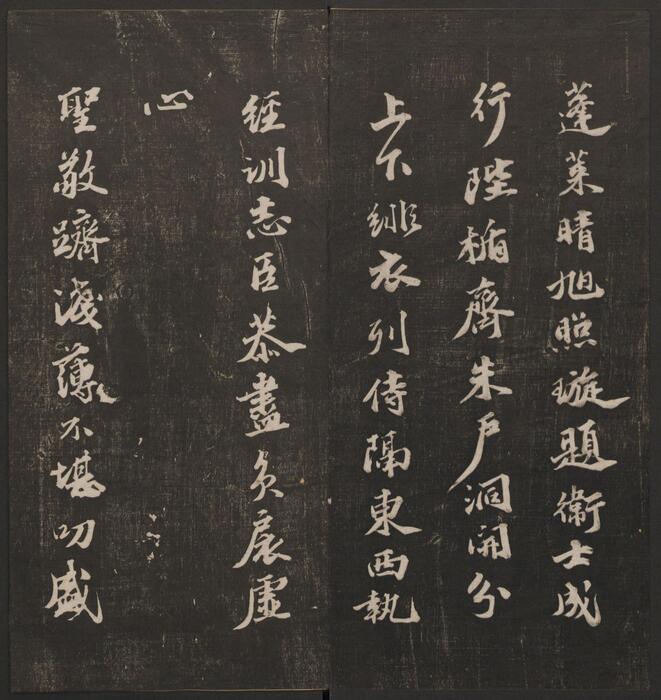 蓬萊晴旭照璇題衛士成
行陛楯齊朱戶洞開分
上下緋衣列侍隔東西執
經訓志臣恭盡負扆虛
心
聖敬躋淺薄不堪叨盛